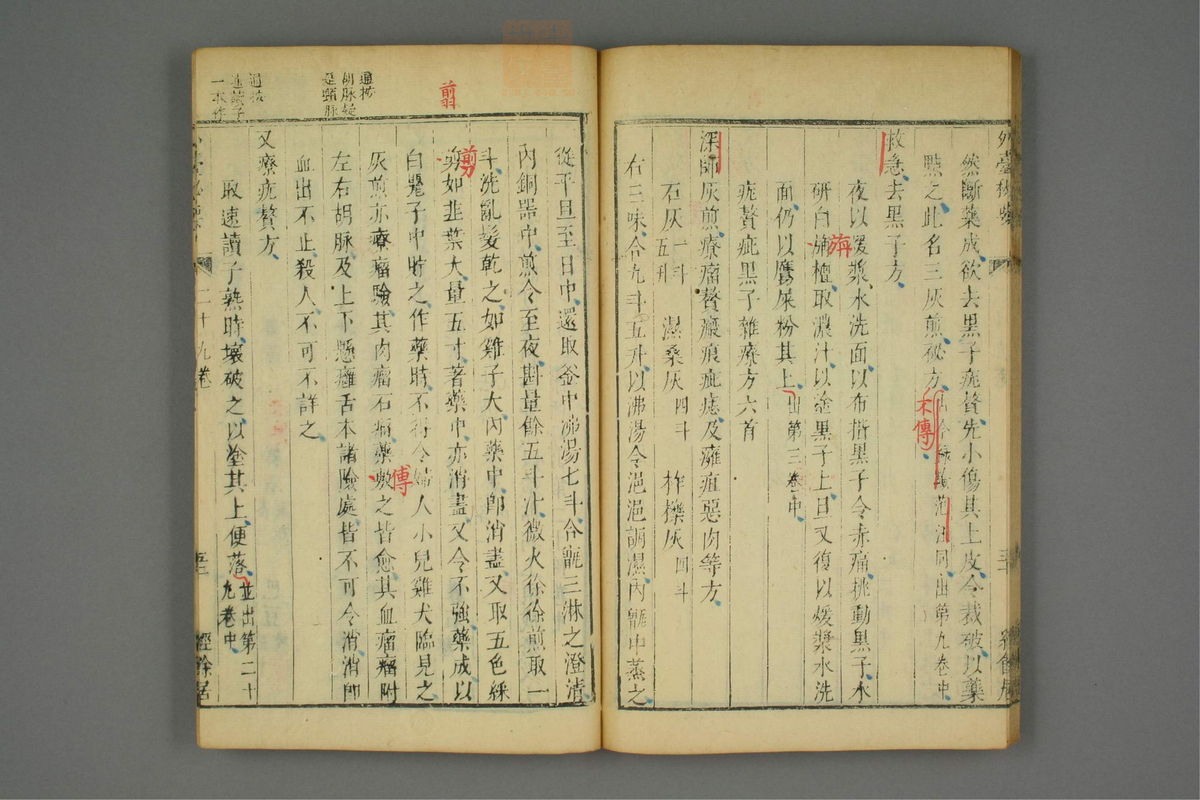 外臺秘要
然斷藥成欲去黒子疣贅先小傷其上皮令裁破以藥
點之此名三灰煎祕方
同出第九卷中
不傳
救急去黒子方
夜以暖漿水洗面以布揩黒子令赤痛挑動黒子水
研白旃檀取濃汁以塗黒子上旦又復以煖漿水洗
旃
面仍以鷹屎粉其上出第三卷中
疣贅疵黒子雜療方六首
深師灰煎療瘤贅瘢痕疵痣及癰疽惡肉等方
石灰一斗五升 濕桑灰四斗 柞櫟灰四斗
右三味合九斗五升以沸湯令浥浥調濕內甑中蒸之
從平旦至日中還取釜中沸湯七斗合甑三淋之澄清
內銅器中煎令至夜斟量餘五斗汁微火徐徐煎取一
斗洗亂髮乾之如雞子大內藥中即消盡又取五色綵
剪如韭葉大量五寸著藥中亦消盡又令不強藥成以
剪
翦
白罌子中貯之作藥時不得令婦人小兒雞犬臨見之
灰煎亦療瘤驗其肉瘤石瘤藥敷之皆愈其血瘤瘤附
傅
左右胡脉及上下懸癰舌本諸險處皆不可令消消即
血出不止殺人不可不詳之
通按
胡脉疑
是頸脉
又療疣贅方
取速讀子熟時壞破之以塗其上便落並出第二十
九卷中
通按
速讀子
一本作
二十九卷
經餘居